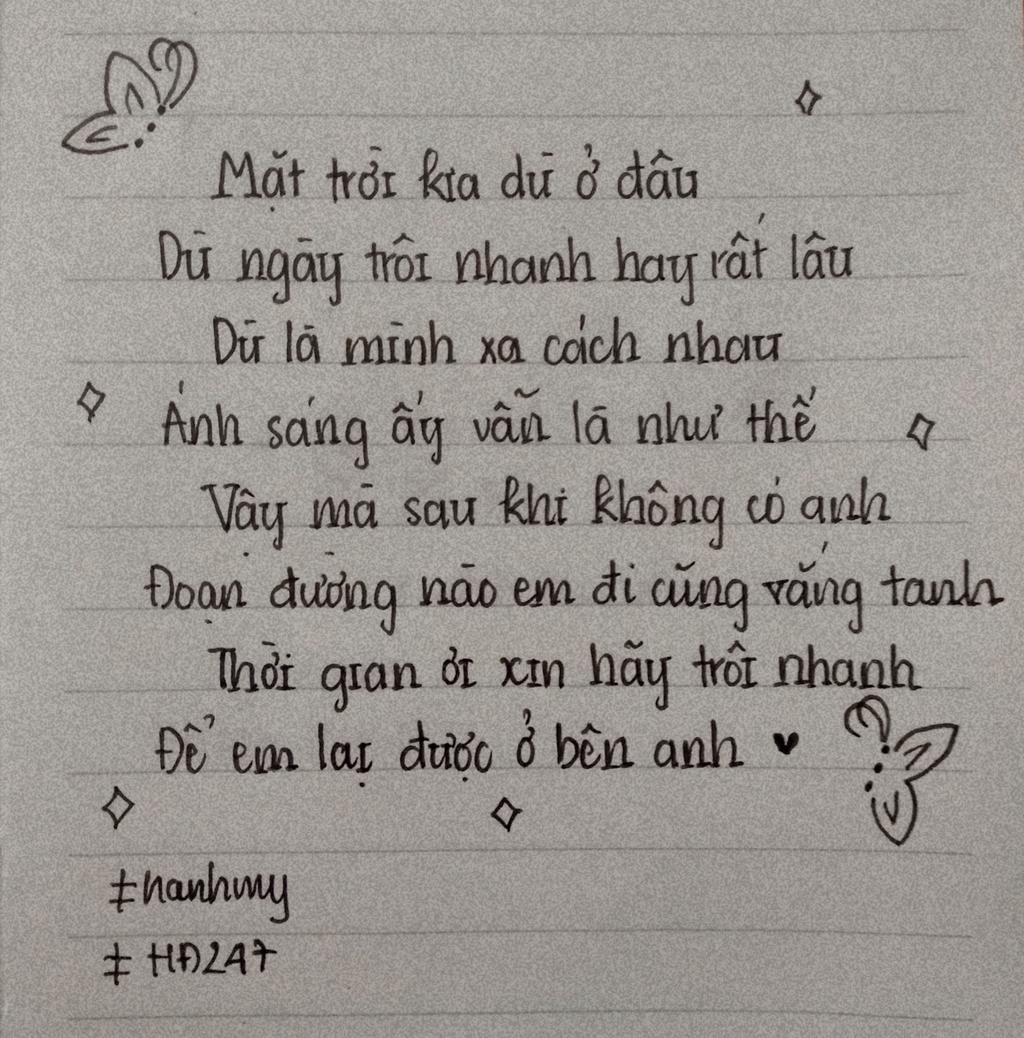 Mặt trời kia dù ở đâu
Dù ngày trôi nhanh hay rất lâu
Dù là mình xa cách nhau
Ánh sáng ấy vẫn là như thế
Vậy mà sau khi không có anh
Đoạn đường nào em đi cũng vắng tanh
Thời gian ơi xin hãy trôi nhanh
Để em lại được ở bên anh ♥
#hanhmy
#HĐ247